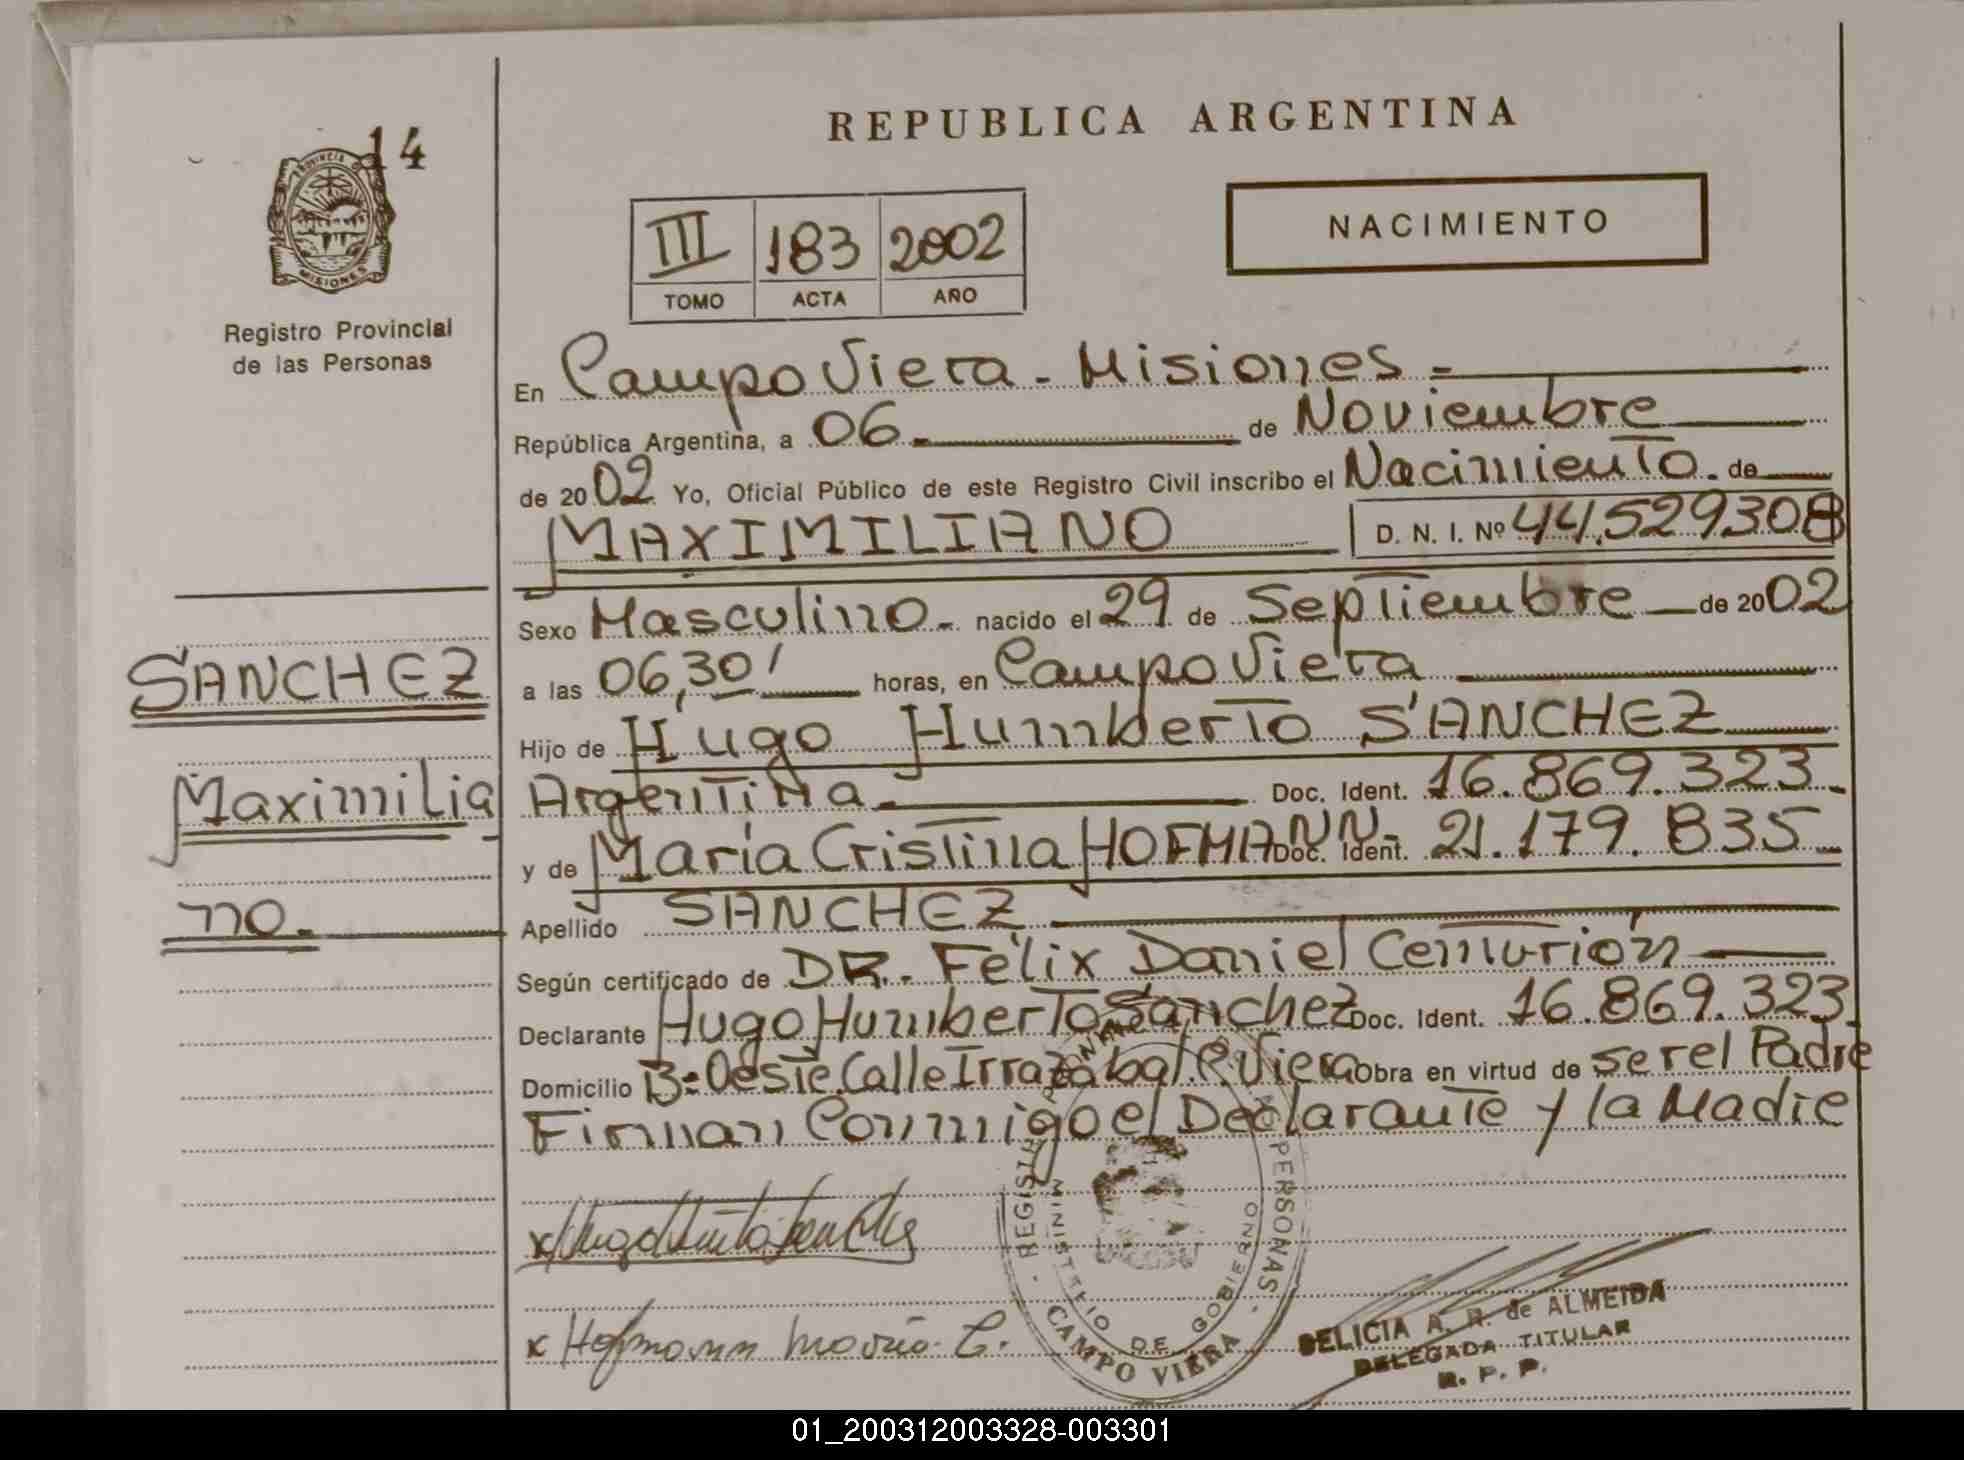 14
PROVINCIA D
MISIONES
Registro Provincial
de las Personas
SANCHEZ
Maximilia
no.
REPUBLICA ARGENTINA
III 183 2002
TOMO ACTA AÑO
NACIMIENTO
En Campo Viera - Misiones.=
República Argentina, a 06 de Noviembre
de 2002 Yo, Oficial Público de este Registro Civil inscribo el Nacimiento. de
MAXIMILIANO D. N. I. Nº 44.529308
Sexo Masculino. nacido el 29 de Septiembre de 2002
a las 06,30' horas, en Campo Viera
Hijo de Hugo Humberto SANCHEZ
Argentina. Doc. Ident. 16.869.323
y de María Cristina HOFMANN- Doc. Ident. 21.179.835
Apellido SANCHEZ
Según certificado de DR. Félix Daniel Centurión
Declarante Hugo Humberto Sanchez Doc. Ident. 16.869.323
Domicilio B=Oeste.Calle Irrazabal.C.Viera Obra en virtud de ser el Padre
Firman Conmigo el Declarante y la Madre
x Hofmann María C.
PERSONAS
MINISTERIO DE GOBIERNO
CAMPO VIERA
DELICIA A. R. de ALMEIDA
DELEGADA TITULAR
R. P. P.
01_200312003328-003301